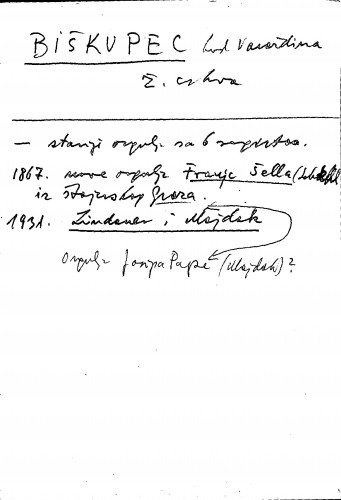 BIŠKUPEC kod Varaždina
ž. crkva
— stariji orgulje sa 6 registra.
1867. nove orgulje Franje Šella
iz štajerskog Graza.
1931. Lindauer i Majdak
Orgulje Josipa Pape (Majdak)?